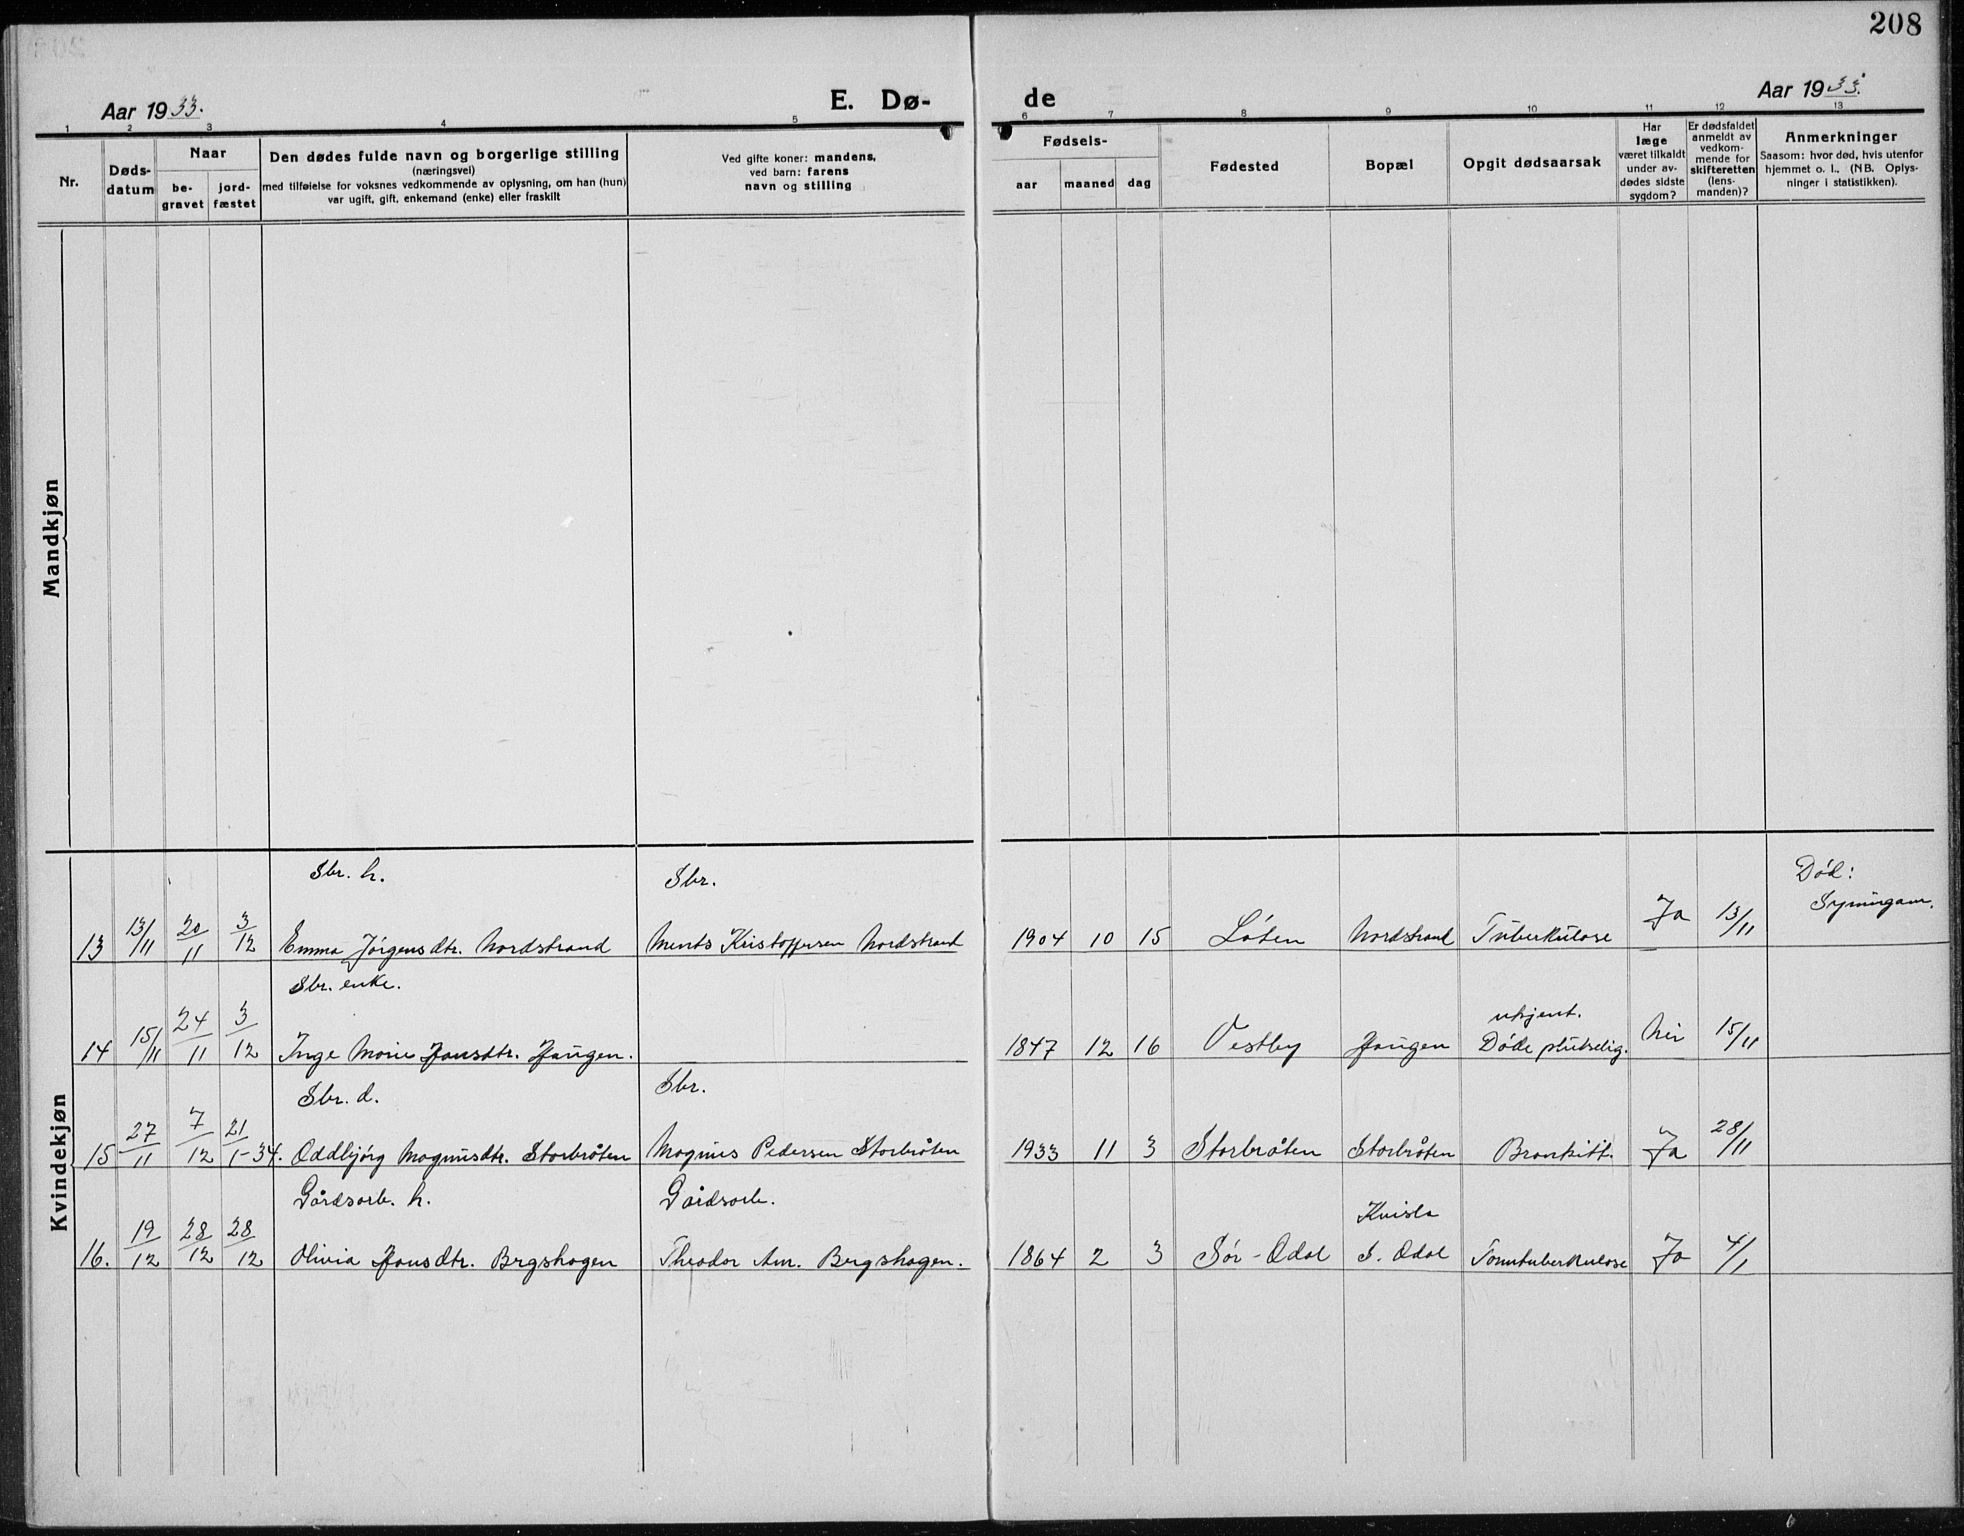 208
Aar 1933.
E. Dø-
de
Aar 1933.
1 2 3 4 5 6 7 8 9 10 11 12 13
Nr.
Døds-
datum
Naar
be-
gravet
jord-
fæstet
Den dødes fulde navn og borgerlige stilling
(næringsvei)
med tilføielse for voksnes vedkommende av oplysning, om han (hun)
var ugift, gift, enkemand (enke) eller fraskilt
Ved gifte koner: mandens,
ved barn: farens
navn og stilling
Fødsels-
aar maaned dag
Fødested
Bopæl
Opgit dødsaarsak
Har
læge
været tilkaldt
under av-
dødes sidste
sygdom?
Er dødsfaldet
anmeldt av
vedkom-
mende for
skifteretten
(lens-
manden)?
Anmerkninger
Saasom: hvor død, hvis utenfor
hjemmet o. l., (NB. Oplys-
ninger i statistikken).
Mandkjøn
Kvindekjøn
Sbr. h. Sbr. Død:
13 13/11 20/11 3/12 Emma Jørgensdtr. Nordstrand Kristoffersen Nordstrand 1904 10 15 Løten Nordstrand Tuberkulose Ja 13/11
Sbr. enke.
ukjent.
14 15/11 24/11 3/12 Inge Marie Hansdtr. Haugen. 1847 12 16 Vestby Haugen Døde plutselig. Nei 15/11
Sbr. d. Sbr.
15 27/11 7/12 21/1-34. Oddbjørg Magnusdtr. Storbråten Magnus Pedersen Storbråten 1933 11 3 Storbråten Storbråten Bronkitt. Ja 28/11
Gårdsarb. h. Gårdsarb. Kvisla
16. 19/12 28/12 28/12 Olivia Hansdtr. Bergshagen Theodor Am. Bergshagen. 1864 2 3 Sør-Odal S. Odal Tarmtuberkulose Ja 4/1